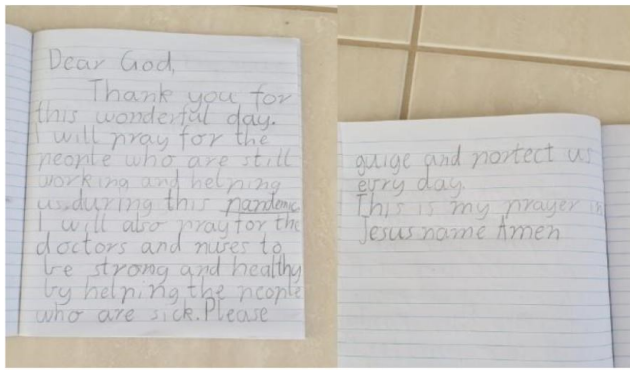 Dear God,
Thank you for
this wonderful day.
I will pray for the
people who are still
working and helping
us during this pandemic
I will also pray for the
doctors and nures to
be strong and healthy
by helping the people
who are sick. Please
guige and portect us
evry day.
This is my prayer in
Jesus name Amen